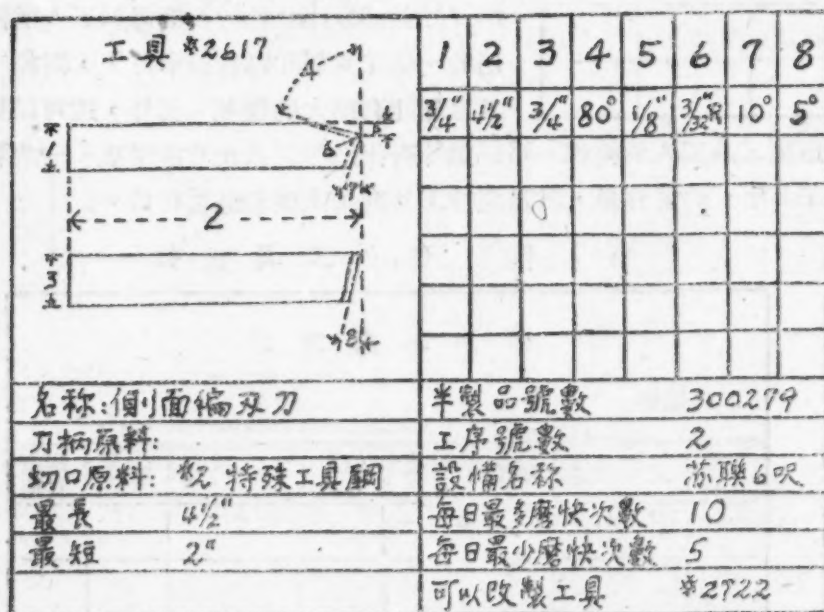 工具 #2617
1 2 3 4 5 6 7 8
3/4" 4 1/2" 3/4" 80° 1/8" 3/32"R 10° 5°
4
6
1
7
2
3
8
名称:側面偏刄刀
刀柄原料:
切口原料: #2 特殊工具鋼
最長 4 1/2"
最短 2"
半製品號數 300279
工序號數 2
設備名称 苏聯6呎
每日最多磨快次數 10
每日最少磨快次數 5
可以改製工具 #2722